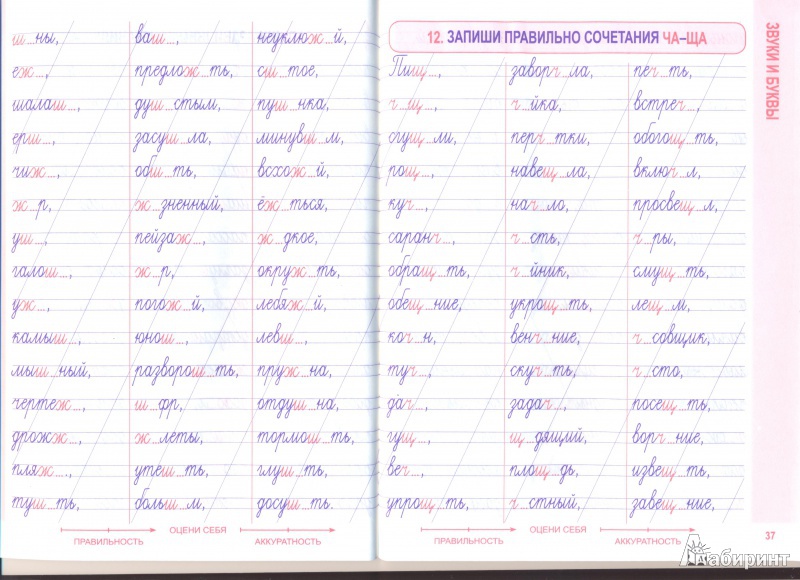 ш...ны, ваш..., неуклюж...й,
еж..., предлож...ть, сш...тое,
шалаш..., душ...стым, пуш...нка,
ерш..., засуш...ла, минувш...м,
чиж..., обш...ть, всхож...й,
ж...р, ж...зненный, ёж...ться,
уш..., пейзаж..., ж...дкое,
галош..., ж...р, окруж...ть,
уж..., погож...й, лебяж...й,
камыш..., юнош..., левш...,
мыш...ный, разворош...ть, пруж...на,
чертеж..., ш...фр, отдуш...на,
дрожж..., ж...леты, тормош...ть,
пляж..., утеш...ть, глуш...ть,
туш...ть, больш...м, досуш...ть.
ОЦЕНИ СЕБЯ
ПРАВИЛЬНОСТЬ АККУРАТНОСТЬ
12. ЗАПИШИ ПРАВИЛЬНО СОЧЕТАНИЯ ЧА–ЩА
Пищ..., заворч...ла, печ...ть,
ч...щ..., ч...йка, встреч...,
сгущ...ли, перч...тки, обогощ...ть,
рощ..., навещ...ла, включ...л,
куч..., нач...ло, просвещ...л,
саранч..., ч...сть, ч...ры,
обращ...ть, ч...йник, смущ...ть,
обещ...ние, укрощ...ть, лещ...м,
коч...н, венч...ние, ч...совщик,
туч..., скуч...ть, ч...сто,
дач..., задач..., посещ...ть,
гущ..., щ...дящий, ворч...ние,
веч..., площ...дь, извещ...ть,
упрощ...ть, ч...стный, завещ...ние,
ОЦЕНИ СЕБЯ
ПРАВИЛЬНОСТЬ АККУРАТНОСТЬ
ЗВУКИ И БУКВЫ
37
Лабиринт